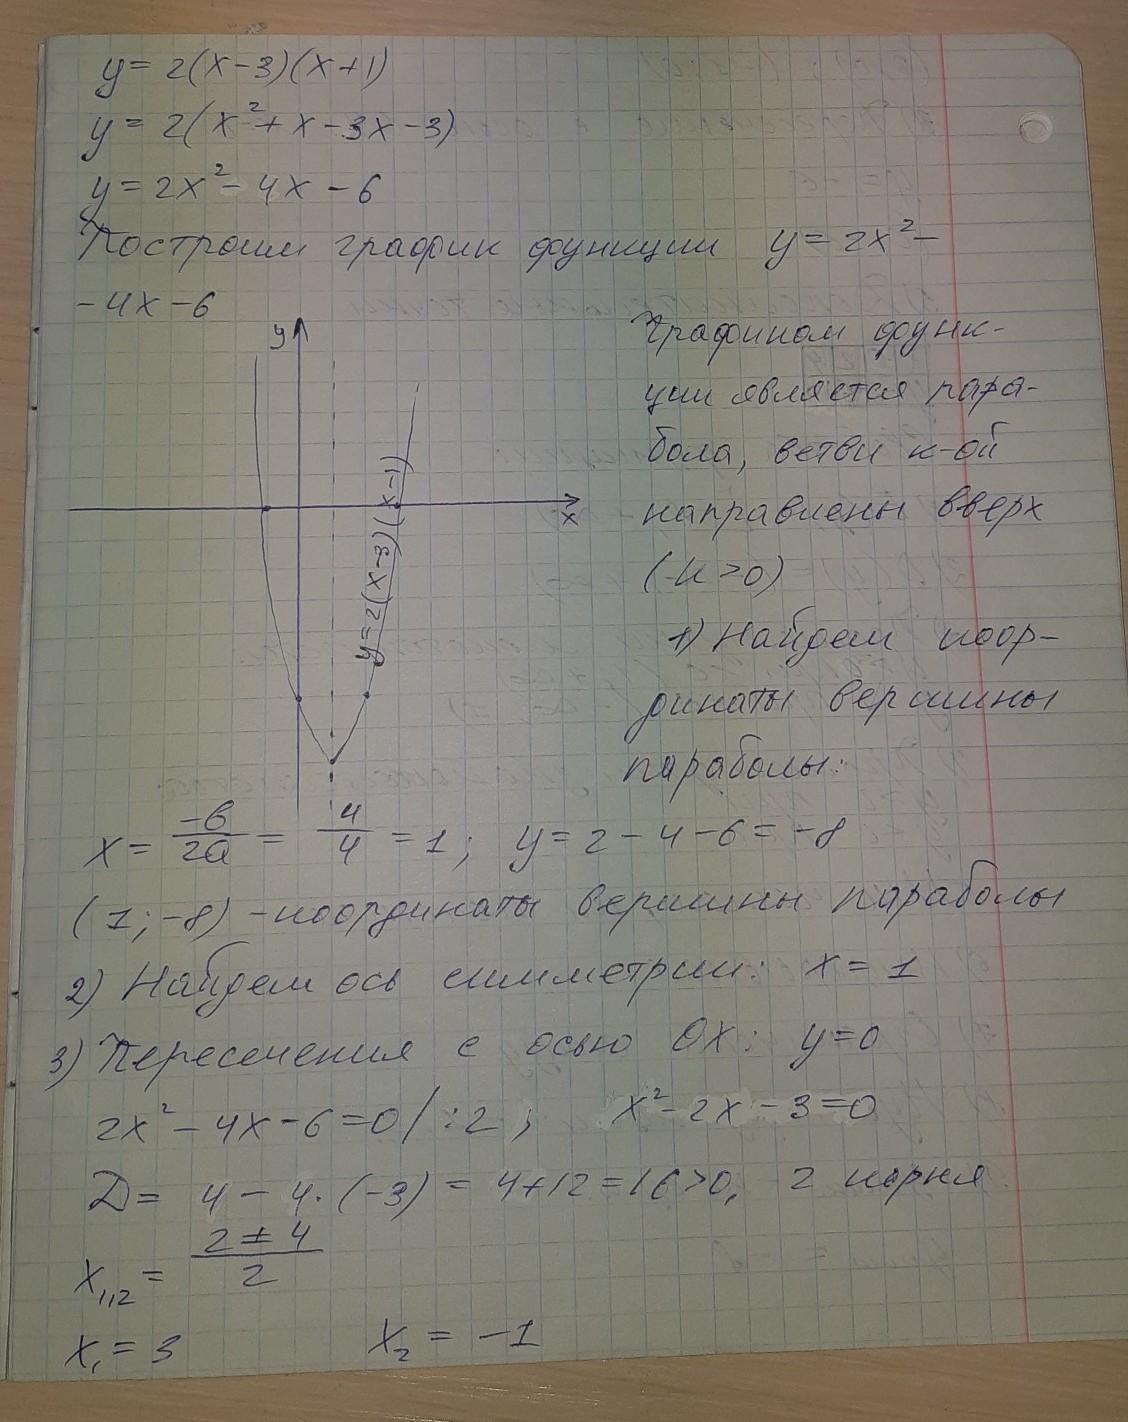 y = 2(x-3)(x+1)
y = 2(x²+x-3x-3)
y = 2x² - 4x - 6
Построим график функции y = 2x² -
- 4x - 6
y
x
y = 2(x-3)(x-1)
Графиком функ-
ции является пара-
бола, ветви к-ой
направлены вверх
(к > 0)
1) Найдем коор-
динаты вершины
параболы:
x = -b/2a = 4/4 = 1; y = 2 - 4 - 6 = -8
(1; -8) - координаты вершины параболы
2) Найдем ось симметрии: x = 1
3) Пересечения с осью OX: y = 0
2x² - 4x - 6 = 0 / :2; x² - 2x - 3 = 0
D = 4 - 4·(-3) = 4+12 = 16 > 0, 2 корня
x₁,₂ = 2±4/2
x₁ = 3 x₂ = -1